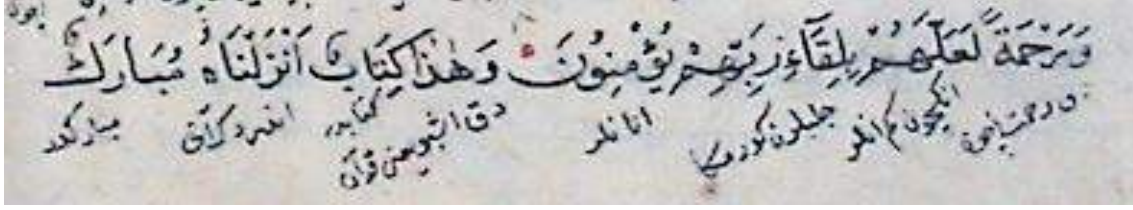 وَرَحْمَةً لَعَلَّهُمْ بِلِقَآءِ رَبِّهِمْ يُؤْمِنُونَ وَهٰذَا كِتَابٌ اَنْزَلْنَاهُ مُبَارَكٌ
رحمت ايچون انكيچون كم انلر چلبلرن كورمكا انانلر دق اشبو يعنى قرآن كتابدر اندردك آنى مباركدر